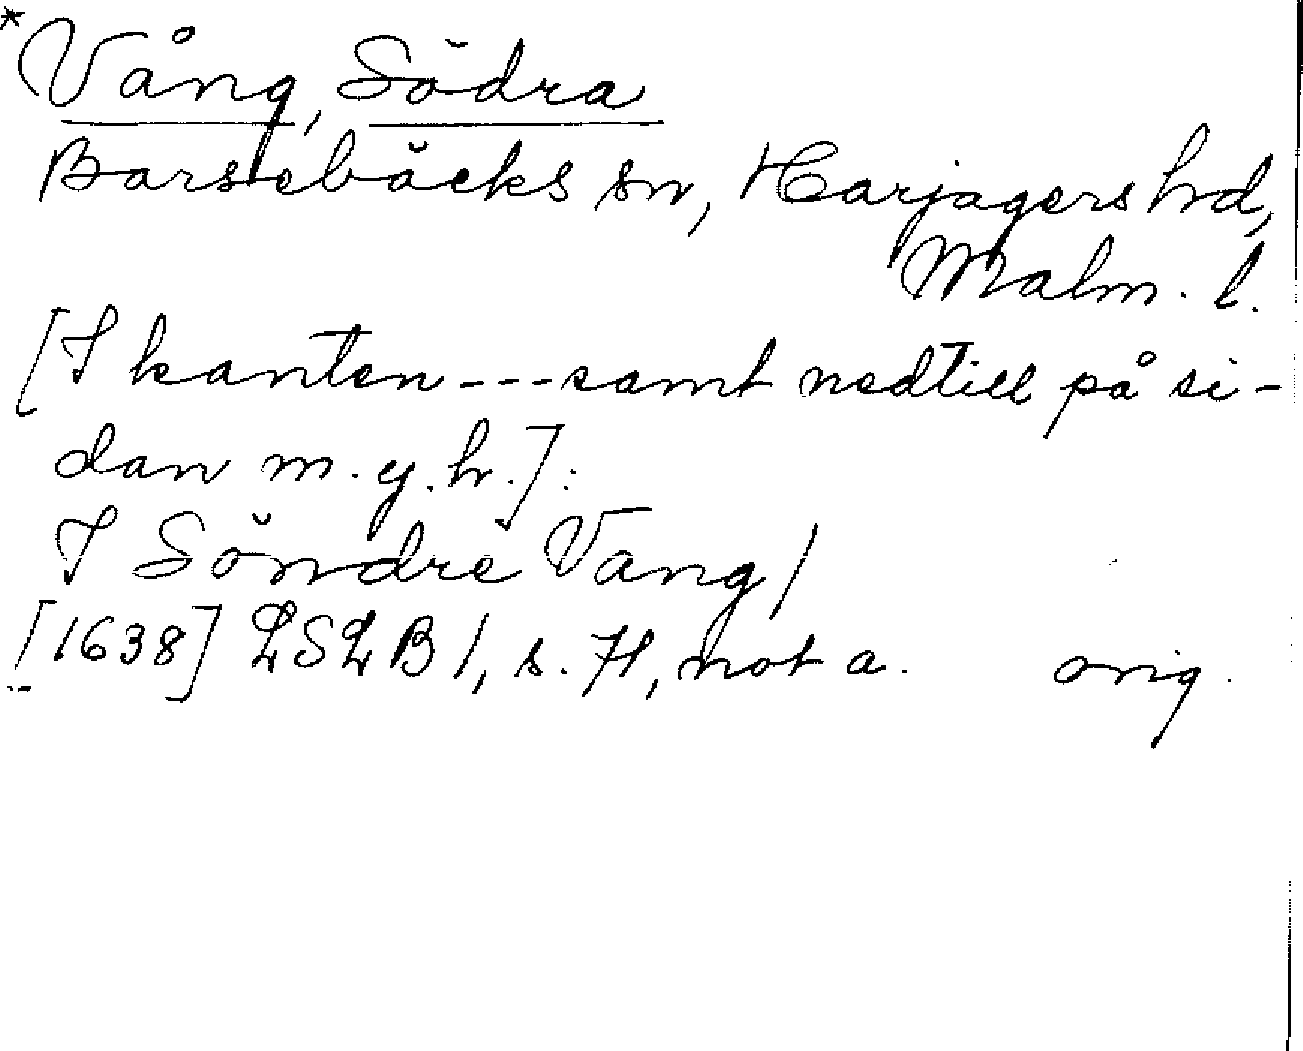 *Vång, Södra
Barsebäcks sn, Harjagers hrd,
Malm. l.
[I kanten --- samt nedtill på si-
dan m. y. h.]:
I Söndre Vang/
[1638] LSLB 1, s. 71, not a. orig.